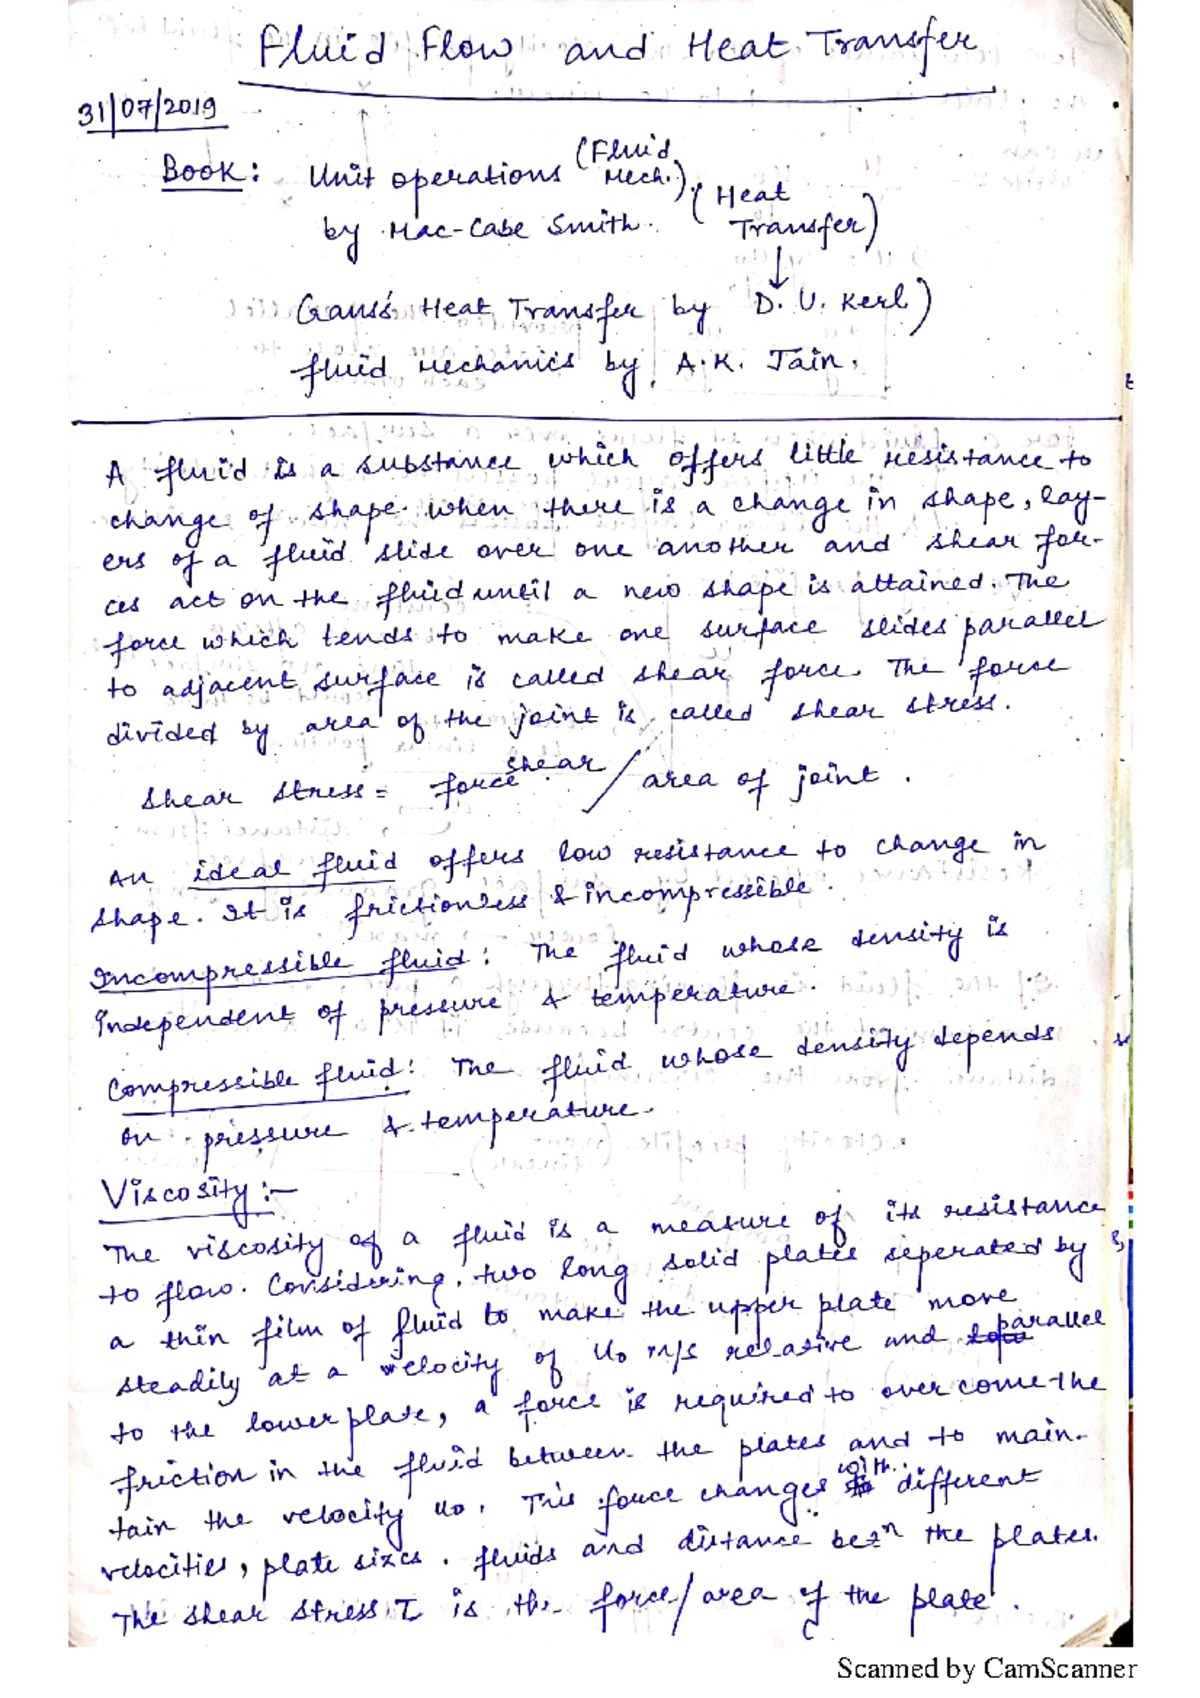 Fluid Flow and Heat Transfer
31/07/2019
Book: Unit operations (Fluid Mech.),
by Mac-Cabe Smith. (Heat Transfer)
↓
Gauss Heat Transfer by D. U. Kerl)
fluid Mechanics by A.K. Jain.
A fluid is a substance which offers little resistance to
change of shape. when there is a change in shape, lay-
ers of a fluid slide over one another and shear for-
ces act on the fluid until a new shape is attained. The
force which tends to make one surface slides parallel
to adjacent surface is called shear force. The force
divided by area of the joint is called shear stress.
Shear stress = force shear / area of joint.
An ideal fluid offers low resistance to change in
shape. It is frictionless & incompressible.
Incompressible fluid: The fluid whose density is
independent of pressure & temperature.
Compressible fluid: The fluid whose density depends
on pressure & temperature.
Viscosity :-
The viscosity of a fluid is a measure of its resistance
to flow. Considering, two long solid plates seperated by
a thin film of fluid to make the upper plate move
steadily at a velocity of U₀ m/s relative and parallel
to the lower plate, a force is required to over come the
friction in the fluid between the plates and to main-
tain the velocity u₀. This force changes with different
velocities, plate sizes. fluids and distance betⁿ the plates.
The shear stress τ is the force/area of the plate.
Scanned by CamScanner